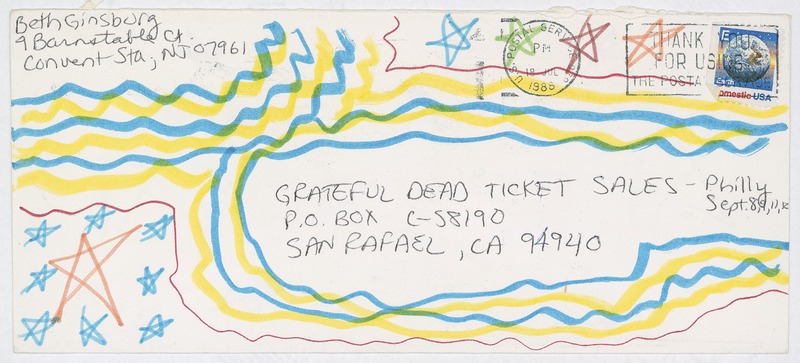 Beth Ginsburg
9 Barnstable Ct.
Convent Sta., NJ 07961
U.S. POSTAL SERVICE
PM
18 JUL
1988
THANK YOU
FOR USING
THE POSTAL
E
Earth
Domestic USA
GRATEFUL DEAD TICKET SALES - Philly
Sept. 8,9,11,12
P.O. BOX C-S8190
SAN RAFAEL, CA 94940